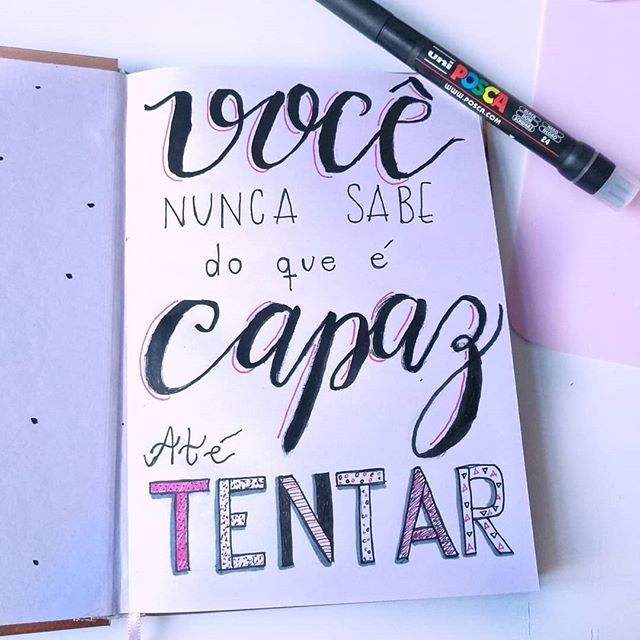 você
NUNCA SABE
do que é
capaz
Até
TENTAR
uni POSCA
WWW.POSCA.COM